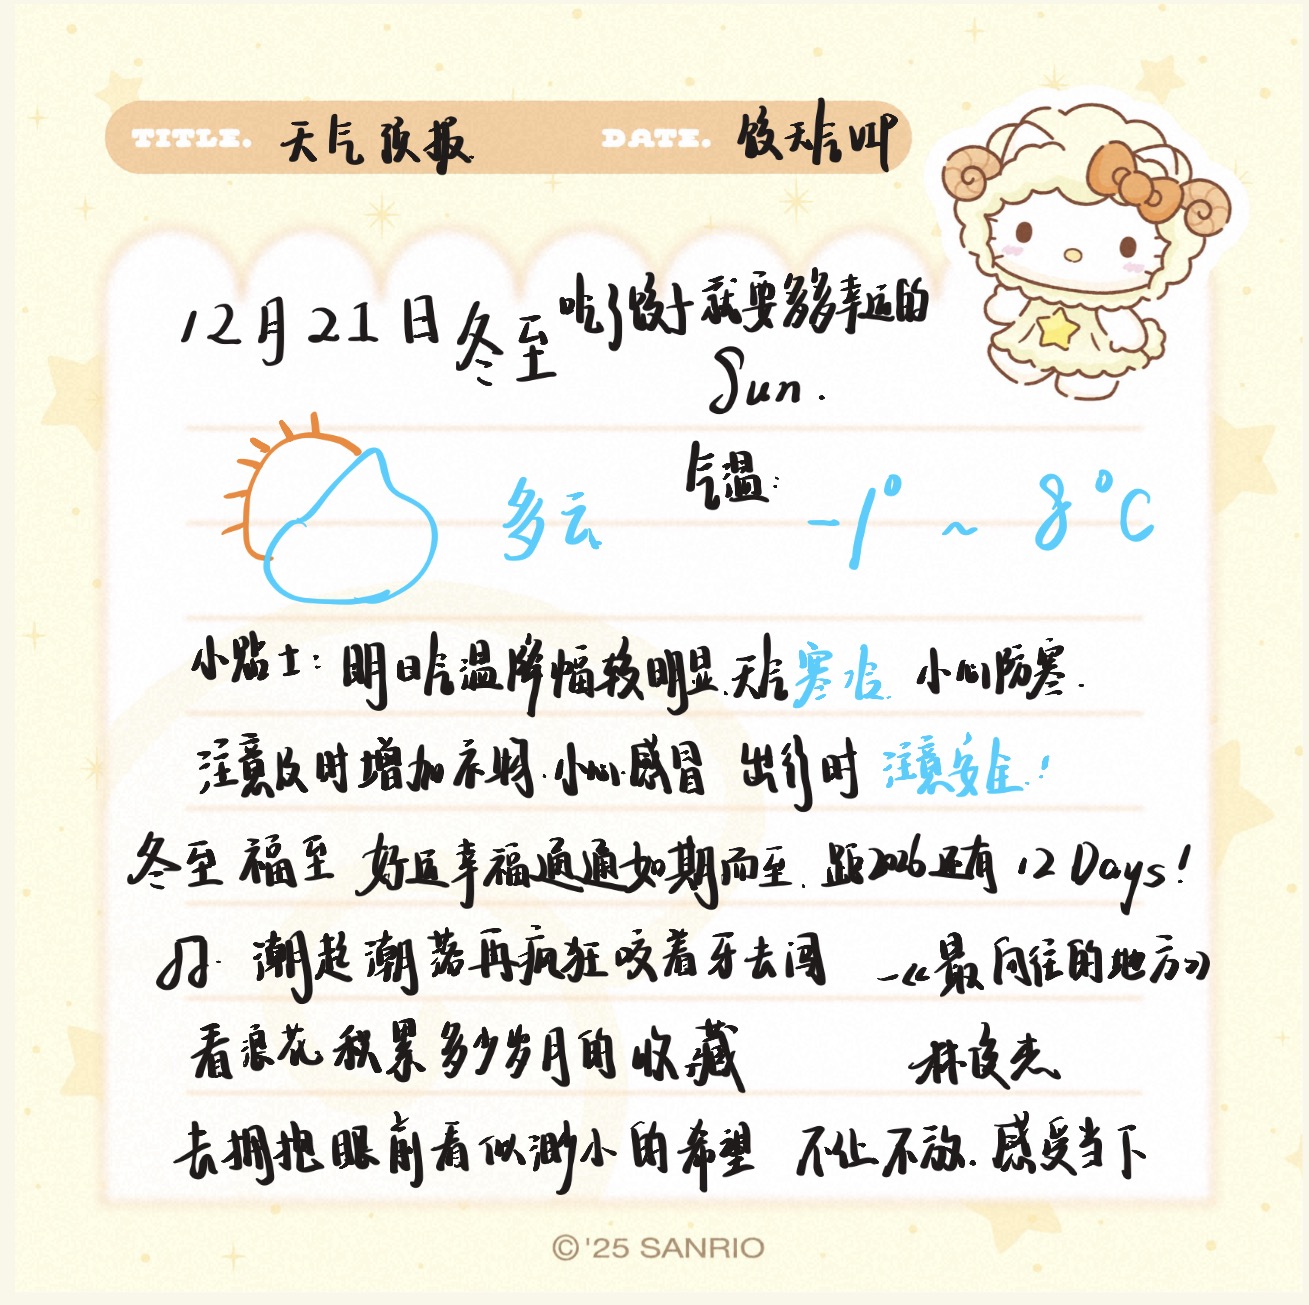 TITLE. 天气预报 DATE. 饺天气叫
12月21日冬至 吃了饺子就要多多幸运的
Sun.
多云 气温: -1° ~ 8°C
小贴士: 明日气温降幅较明显.天气寒冷. 小心防寒.
注意及时增加衣物.小心感冒 出行时 注意安全.!
冬至福至 好运幸福通通如期而至. 距2026还有12Days!
潮起潮落再疯狂咬着牙去闯 —《最向往的地方》
看浪花积累多少岁月的收藏 林俊杰
去拥抱眼前看似渺小的希望 不让不放.感受当下
©'25 SANRIO